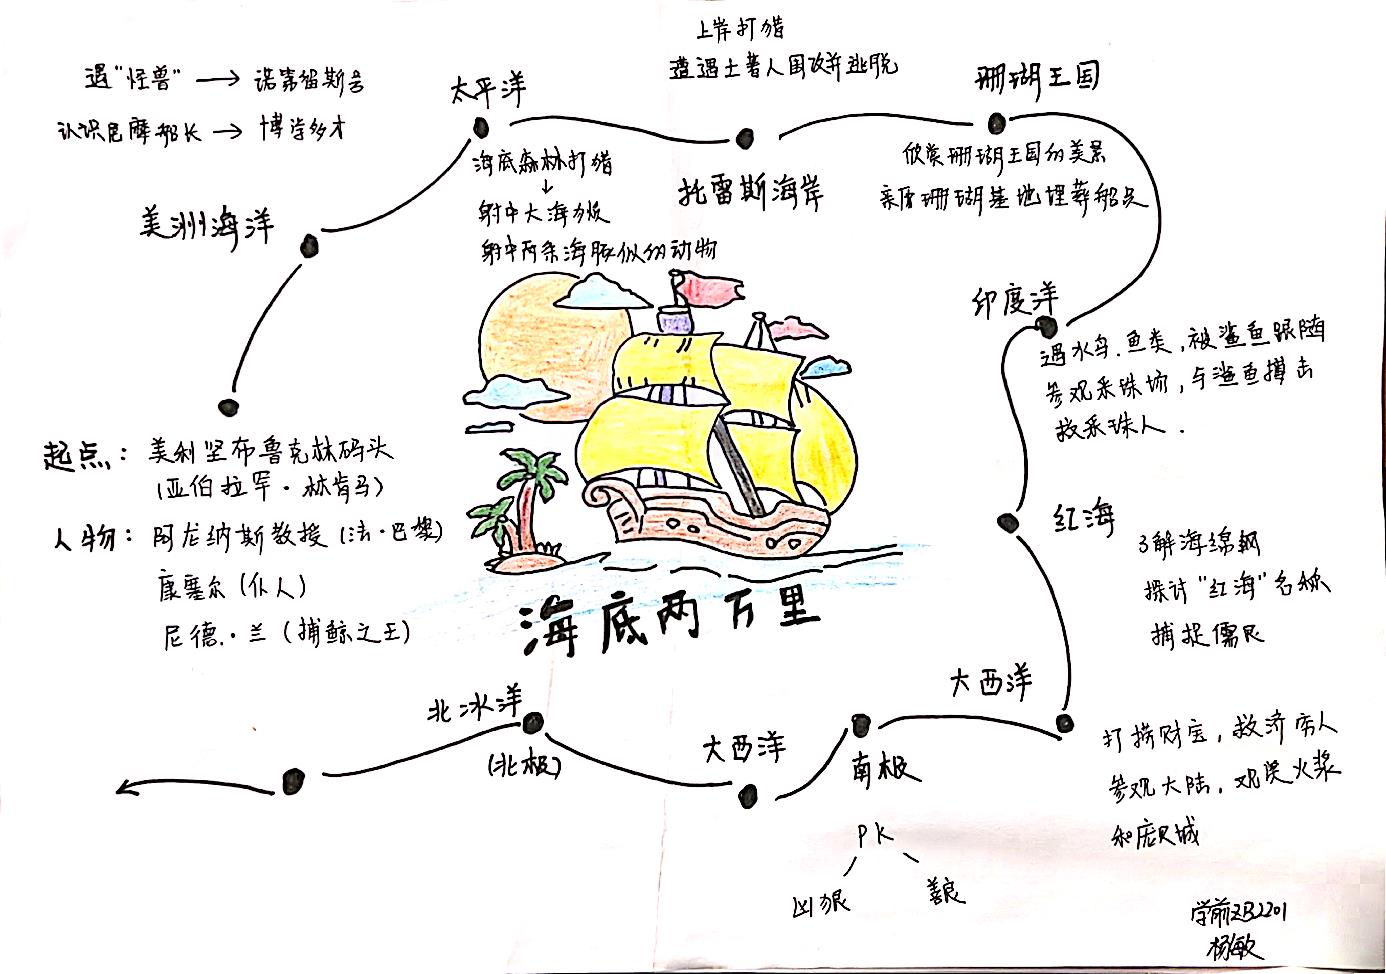 上岸打猎
遭遇土著人围攻并逃脱
遇“怪兽” → 诺第留斯号
认识尼摩船长 → 博学多才
太平洋
珊瑚王国
海底森林打猎
↓
射中大海力妖
射中两条海豚似的动物
托雷斯海岸
欣赏珊瑚王国的美景
亲原珊瑚基地埋葬船员
美洲海洋
印度洋
遇水鸟.鱼类,被鲨鱼跟随
参观采珠场,与鲨鱼搏击
救采珠人.
起点:美利坚布鲁克林码头
(亚伯拉罕·林肯号)
人物:阿龙纳斯教授(法·巴黎)
康塞尔(仆人)
尼德·兰(捕鲸之王)
红海
了解海绵纲
探讨“红海”名称
捕捉儒艮
海底两万里
大西洋
打捞财宝,救济穷人
参观大陆,观赏火浆
和庞贝城
北冰洋
(北极)
大西洋
南极
PK
凶狠
善良
学前ZB2201
杨敏